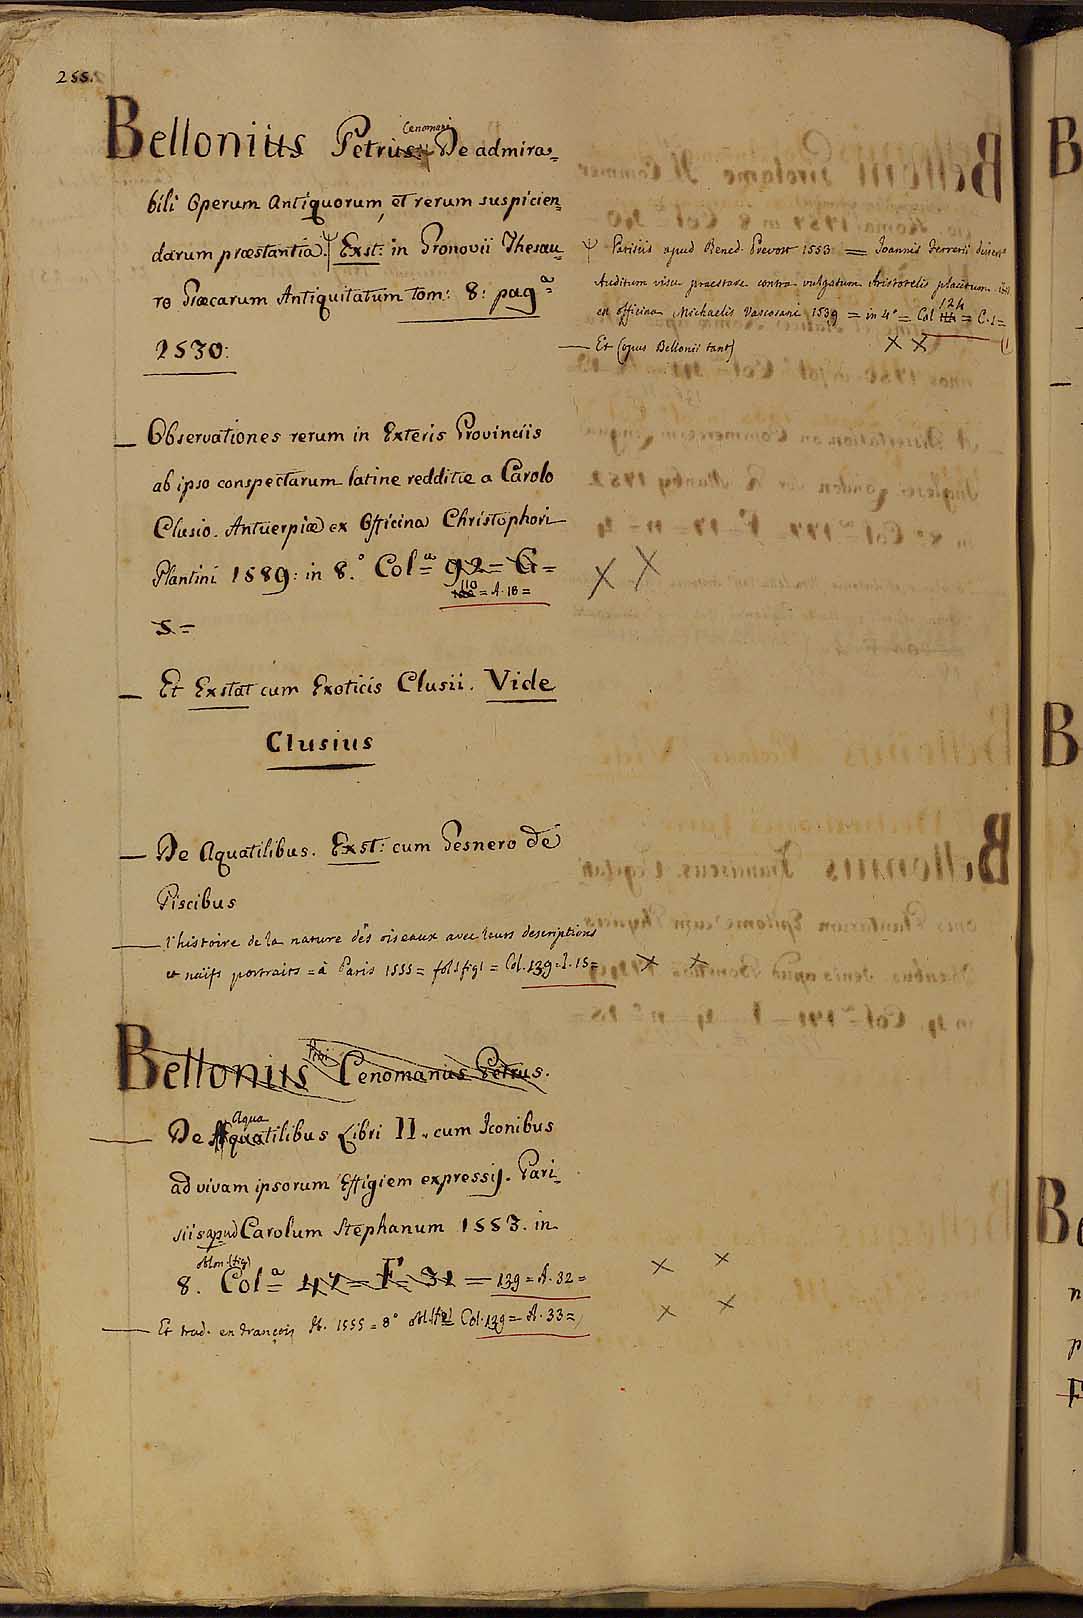 255.
Cenomani
Bellonius Petrus. De admira=
bili Operum Antiquorum, et rerum suspicien=
darum præstantia. Exst: in Gronovii Thesau=
ro Græcarum Antiquitatum tom: 8: pag.a
2530:
Ψ Parisiis apud Bened. Prevost 1553 = Joannis Ferrerii
Auditum visu praestare contra vulgatum Aristotelis placitum.
ex officina Michaelis Vascosani 1539 = in 4° = Col 124 = C. 1 =
— Et (opus Bellonii tant)
— Observationes rerum in Exteris Provinciis
ab ipso conspectarum latine redditæ a Carolo
Clusio. Antuerpiæ ex Officina Christophori
Plantini 1589: in 8.° Col.a 92 = G =
110 = A. 18 =
5 =
— Et Exstat cum Exoticis Clusii. Vide
Clusius
— De Aquatilibus. Exst: cum Gesnero de
Piscibus
— l'histoire de la nature des oiseaux avec leurs descriptions
et naifs portraits = à Paris 1555 = fol. fig. = Col. 139 = I. 15 =
Bellonius Cenomanus Petrus.
Aqua
— De Aquatilibus Libri II. cum Iconibus
ad vivam ipsorum Effigiem expressis. Pari=
siis apud Carolum Stephanum 1553. in
oblon. (fig)
8. Col.a 47 = F. 31 = 139 = A. 32 =
— Et trad. en françois Ib. 1555 = 8° obl. (fig) Col. 139 = A. 33 =